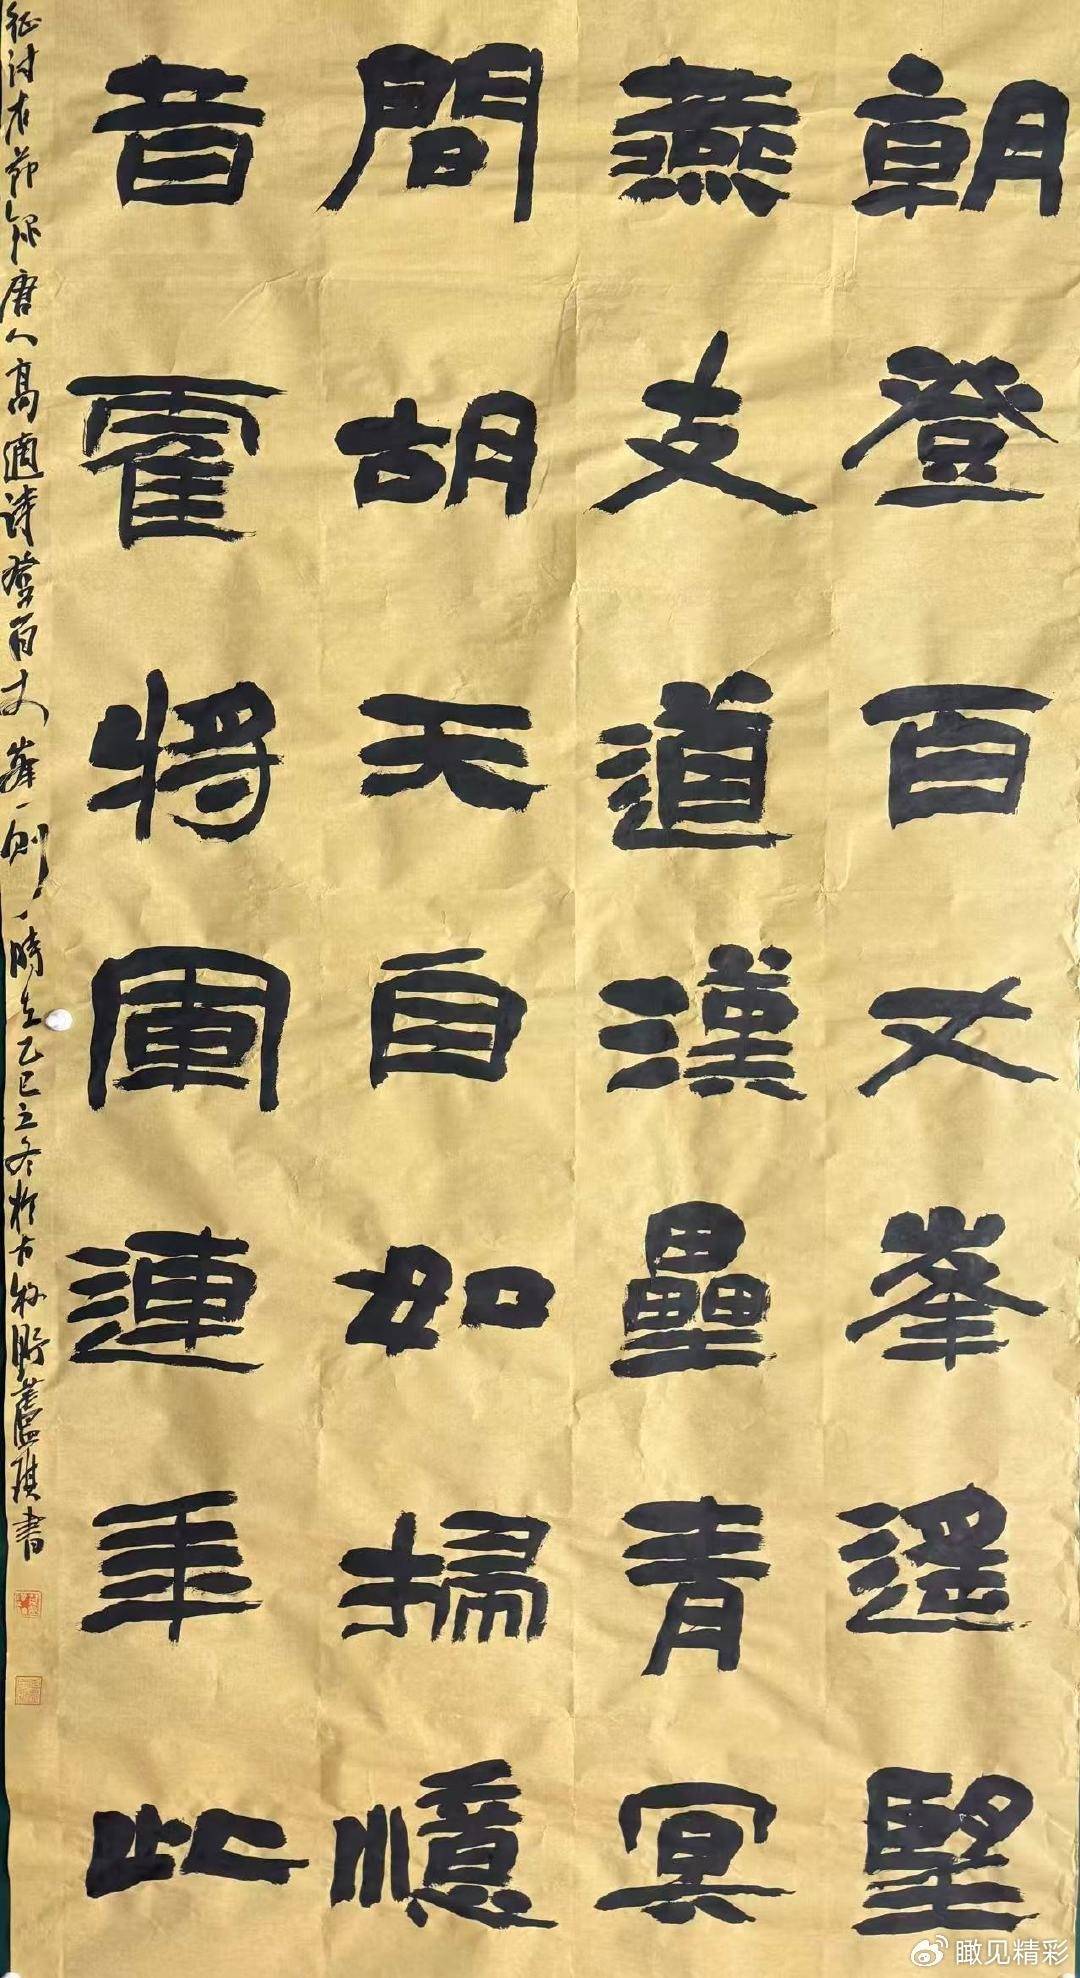 朝登百丈峯遙望
燕支道漢壘青冥
間胡天自如掃憶
昔霍將軍連年此
征討右節錄唐人高適诗登百丈峯一则時在乙巳立冬於古盱蘆琪書
瞰见精彩